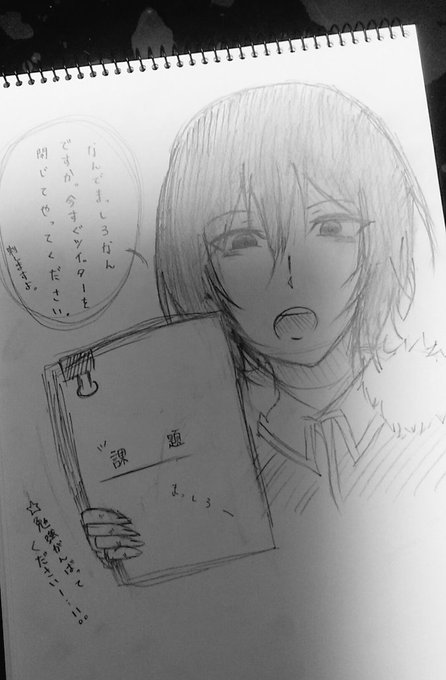 なんでまっしろなん
ですか。今すぐツイッターを
閉じてやってください。
刺しますよ。
課題
まっしろー
☆勉強がんばって
ください!!!。